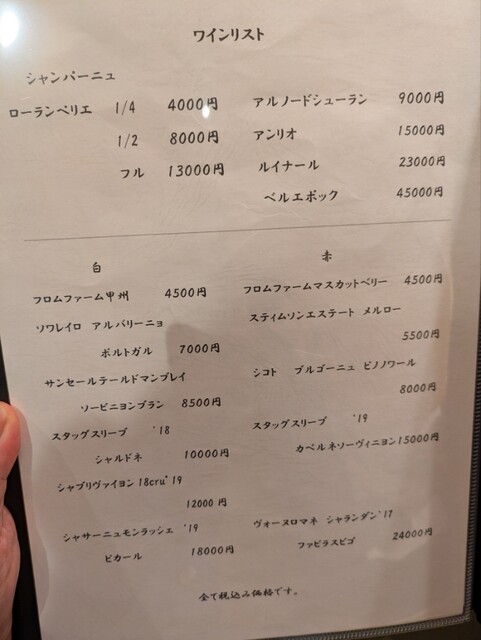 ワインリスト
シャンパーニュ
ローランペリエ 1/4 4000円
1/2 8000円
フル 13000円
アルノードシューラン 9000円
アンリオ 15000円
ルイナール 23000円
ベルエポック 45000円
白
フロムファーム甲州 4500円
ソワレイロ アルバリーニョ
ポルトガル 7000円
サンセールテールドマンブレイ
ソービニヨンブラン 8500円
スタッグスリープ '18
シャルドネ 10000円
シャブリヴァイヨン18cru'19
12000円
シャサーニュモンラッシェ '19
ピカール 18000円
赤
フロムファームマスカットベリー 4500円
スティムソンエステート メルロー
5500円
シコト ブルゴーニュ ピノノワール
8000円
スタッグスリープ '19
カベルネソーヴィニヨン15000円
ヴォーヌロマネ シャランダン'17
ファビラスピゴ 24000円
全て税込み価格です。